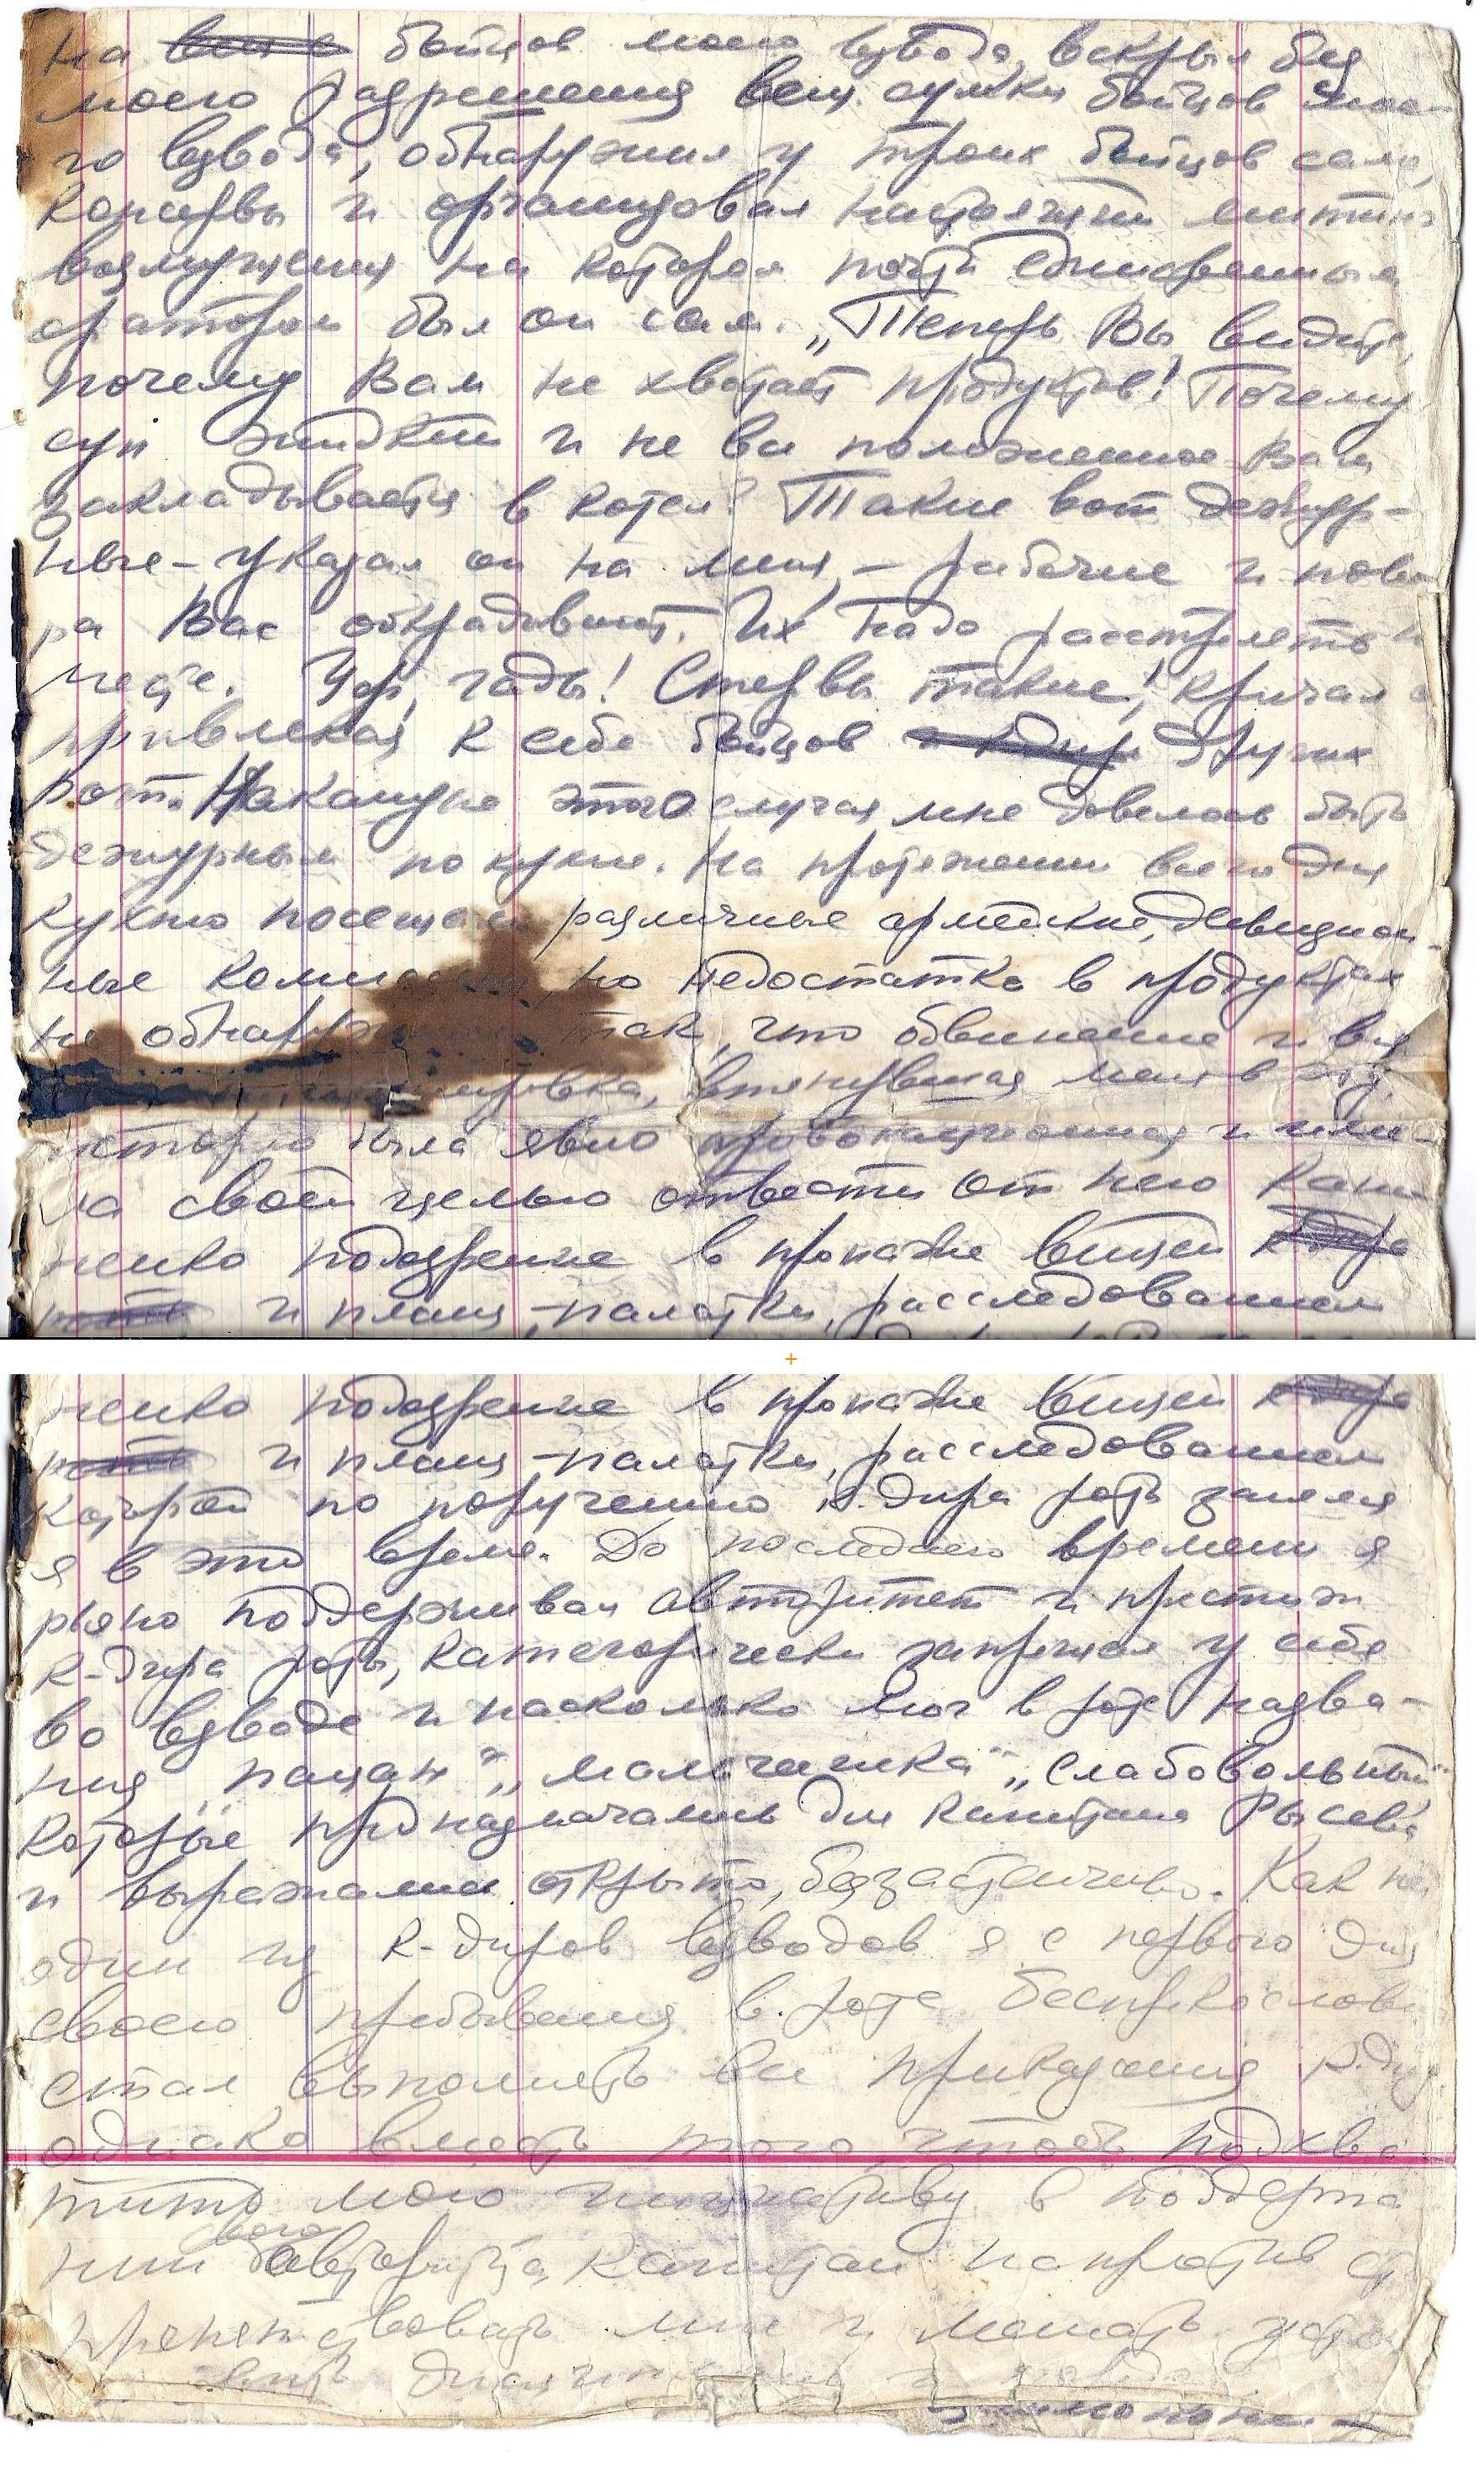 на бойцов моего взвода, вскрыл без
моего разрешения вещ. сумки бойцов мое-
го взвода, обнаружил у троих бойцов сало,
консервы и организовал настоящий митинг
возмущения на котором почти единственным
оратором был он сам. „Теперь Вы видите,
почему Вам не хватает продуктов! Почему
суп жидкий и не все положенное Вам
закладывается в котел? Такие вот дежур-
ные – указал он на меня, – рабочие и пова
ра Вас обкрадывают. Их надо расстрелять на
месте. Ууу, гады! Стервы такие!, кричал он
привлекая к себе бойцов других
рот. Накануне этого случая мне довелось быть
дежурным по кухне. На протяжении всего дня
кухню посещали различные армейские, дивизион-
ные комиссии, но недостатка в продуктах
не обнаружили так, что обвинение и вся
втянувшая меня в эту
историю была явно провокационная и име-
ла своей целью отвести от него
подозрение в пропаже вещей
и плащ-палатки, расследованием
ненко подозрение в пропаже вещей
и плащ-палатки, расследованием
которой по поручению к-дира роты занялся
я в это время. До последнего времени я
рьяно поддерживал авторитет и престиж
к-дира роты, категорически запрещал у себя
во взводе и насколько мог в роте назва-
ния „пацан“, „мальчишка“, „слабовольный“
которые предназначались для капитана Рысева
и выражались открыто, беззастенчиво. Как ни
один из к-диров взводов я с первого дня
своего пребывания в роте беспрекословно
стал выполнять все приказания к-дира
однако вместо того, чтобы подхва-
тить мою инициативу в поддержа
нии своего авторитета, капитан напротив
препятствовать мне и мешать